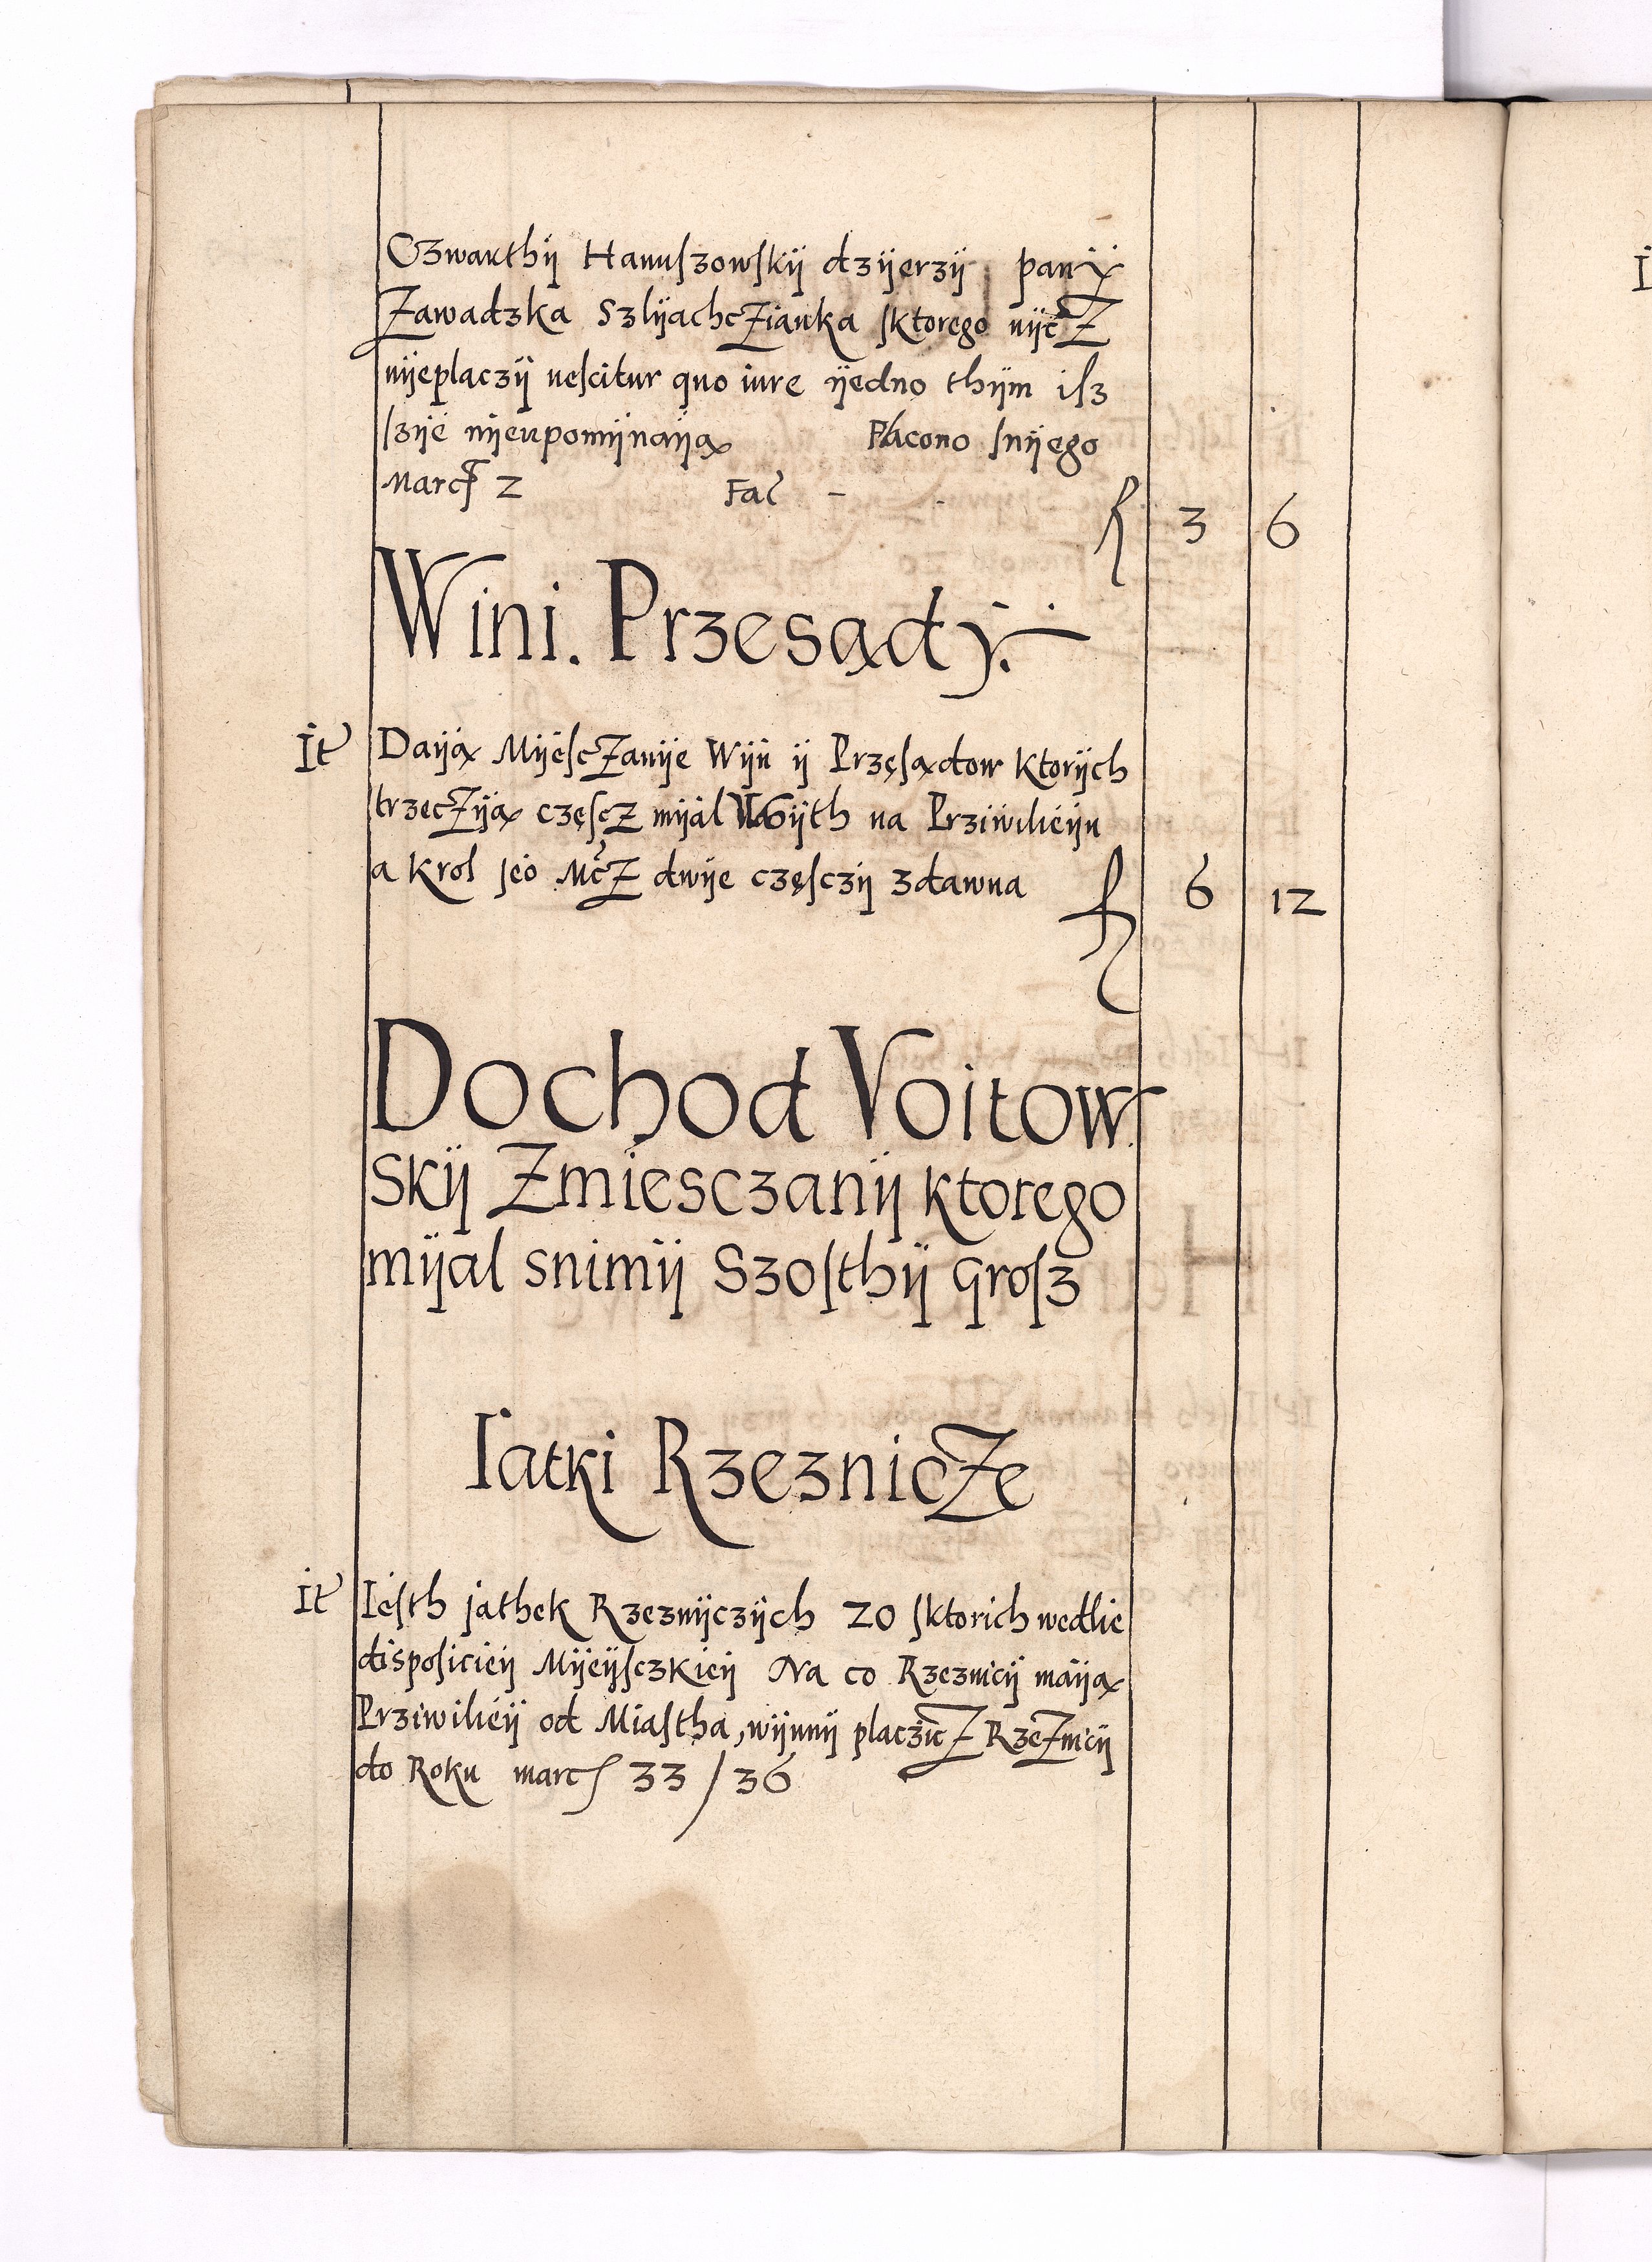 Czwarthÿ Hanuſzowſkÿ dzÿerzÿ panÿ
Zawadzka Szlÿachczianka ſktorego nÿcz
nÿeplaczÿ neſcitur quo iure ÿedno thÿm iſz
ſzÿe nÿeupomÿnaÿą Płacono ſnÿego
Marcſ 2 Fac̃ - R 3 6
Wini. Przesądÿ.
It Daÿą Mÿeſczanÿe Wÿn ÿ Przęſądow ktorÿch
trzeczÿą częſcz mÿal Woÿth na Prziwilieÿu
a Krol jeo Mcz dwÿe częſczÿ zdawna f 6 12
Dochod Voitow
Skÿ Zmiesczanÿ ktorego
mÿal snimÿ Szoſthÿ Groſz
Iatki Rzeznicze
It Ieſth jathek Rzeznÿczÿch 20 ſktorich wedlie
diſpoſicieÿ Mÿeÿſczkieÿ Na co Rzeznicÿ maÿą
Prziwilieÿ od Miaſtha, wÿnnÿ placzicz Rzeznicÿ
do Roku marcſ 33 / 36